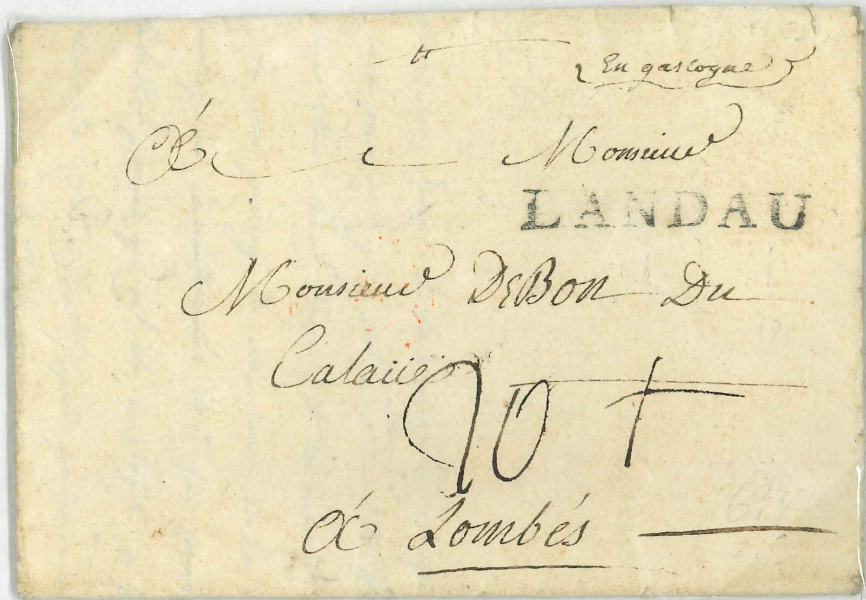 En gascogne
A Monsieur
LANDAU
Monsieur DeBon Du
20 +
à Lombés